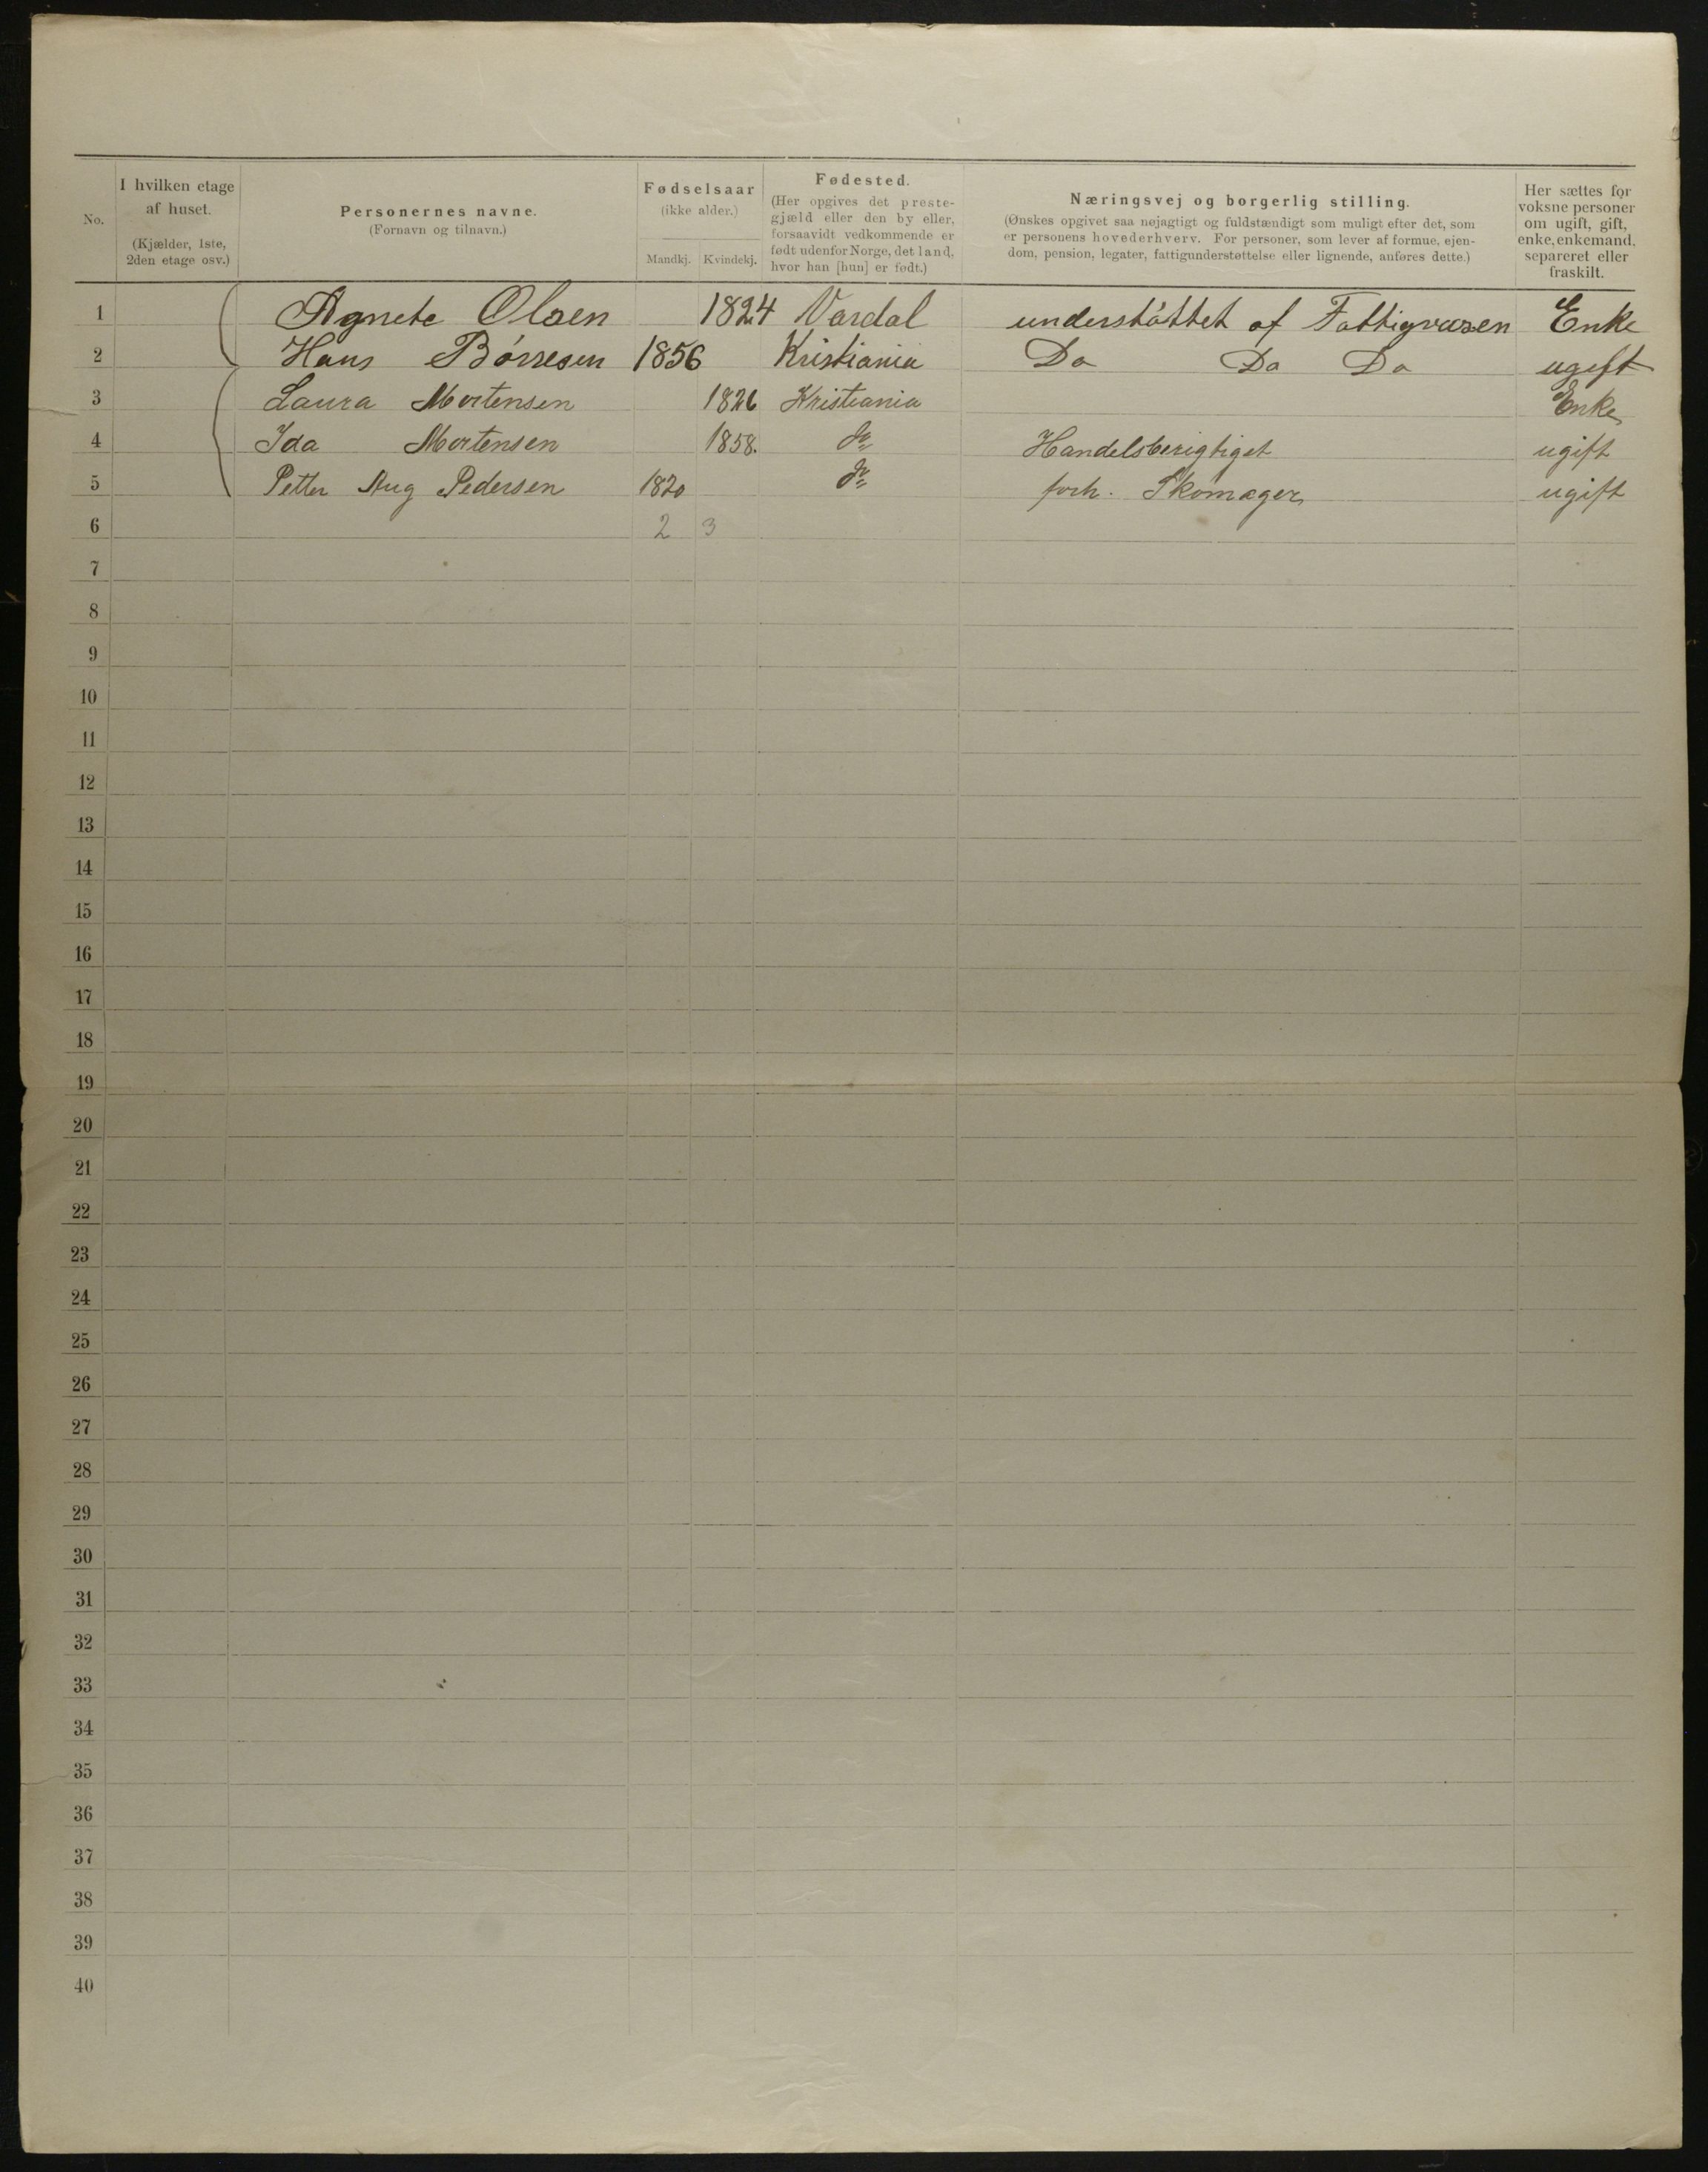 No.
I hvilken etage af huset. (Kjælder, 1ste, 2den etage osv.)
Personernes navne. (Fornavn og tilnavn.)
Fødselsaar (ikke alder.)
Mandkj. Kvindekj.
Fødested. (Her opgives det prestegjæld eller den by eller, forsaavidt vedkommende er født udenfor Norge, det land, hvor han [hun] er født.)
Næringsvej og borgerlig stilling. (Ønskes opgivet saa nøjagtigt og fuldstændigt som muligt efter det, som er personens hovederhverv. For personer, som lever af formue, ejendom, pension, legater, fattigunderstøttelse eller lignende, anføres dette.)
Her sættes for voksne personer om ugift, gift, enke, enkemand, separeret eller fraskilt.
1 Agnete Olsen 1824 Vardal understøttet af Fattigvæsen Enke
2 Hans Børresen 1856 Kristiania Do Do Do ugift
3 Laura Mortensen 1826 Kristiania Enke
4 Ida Mortensen 1858. do Handelsberigtiget ugift
5 Petter Aug Pedersen 1820 do forh. Skomager ugift
6 2 3
7
8
9
10
11
12
13
14
15
16
17
18
19
20
21
22
23
24
25
26
27
28
29
30
31
32
33
34
35
36
37
38
39
40